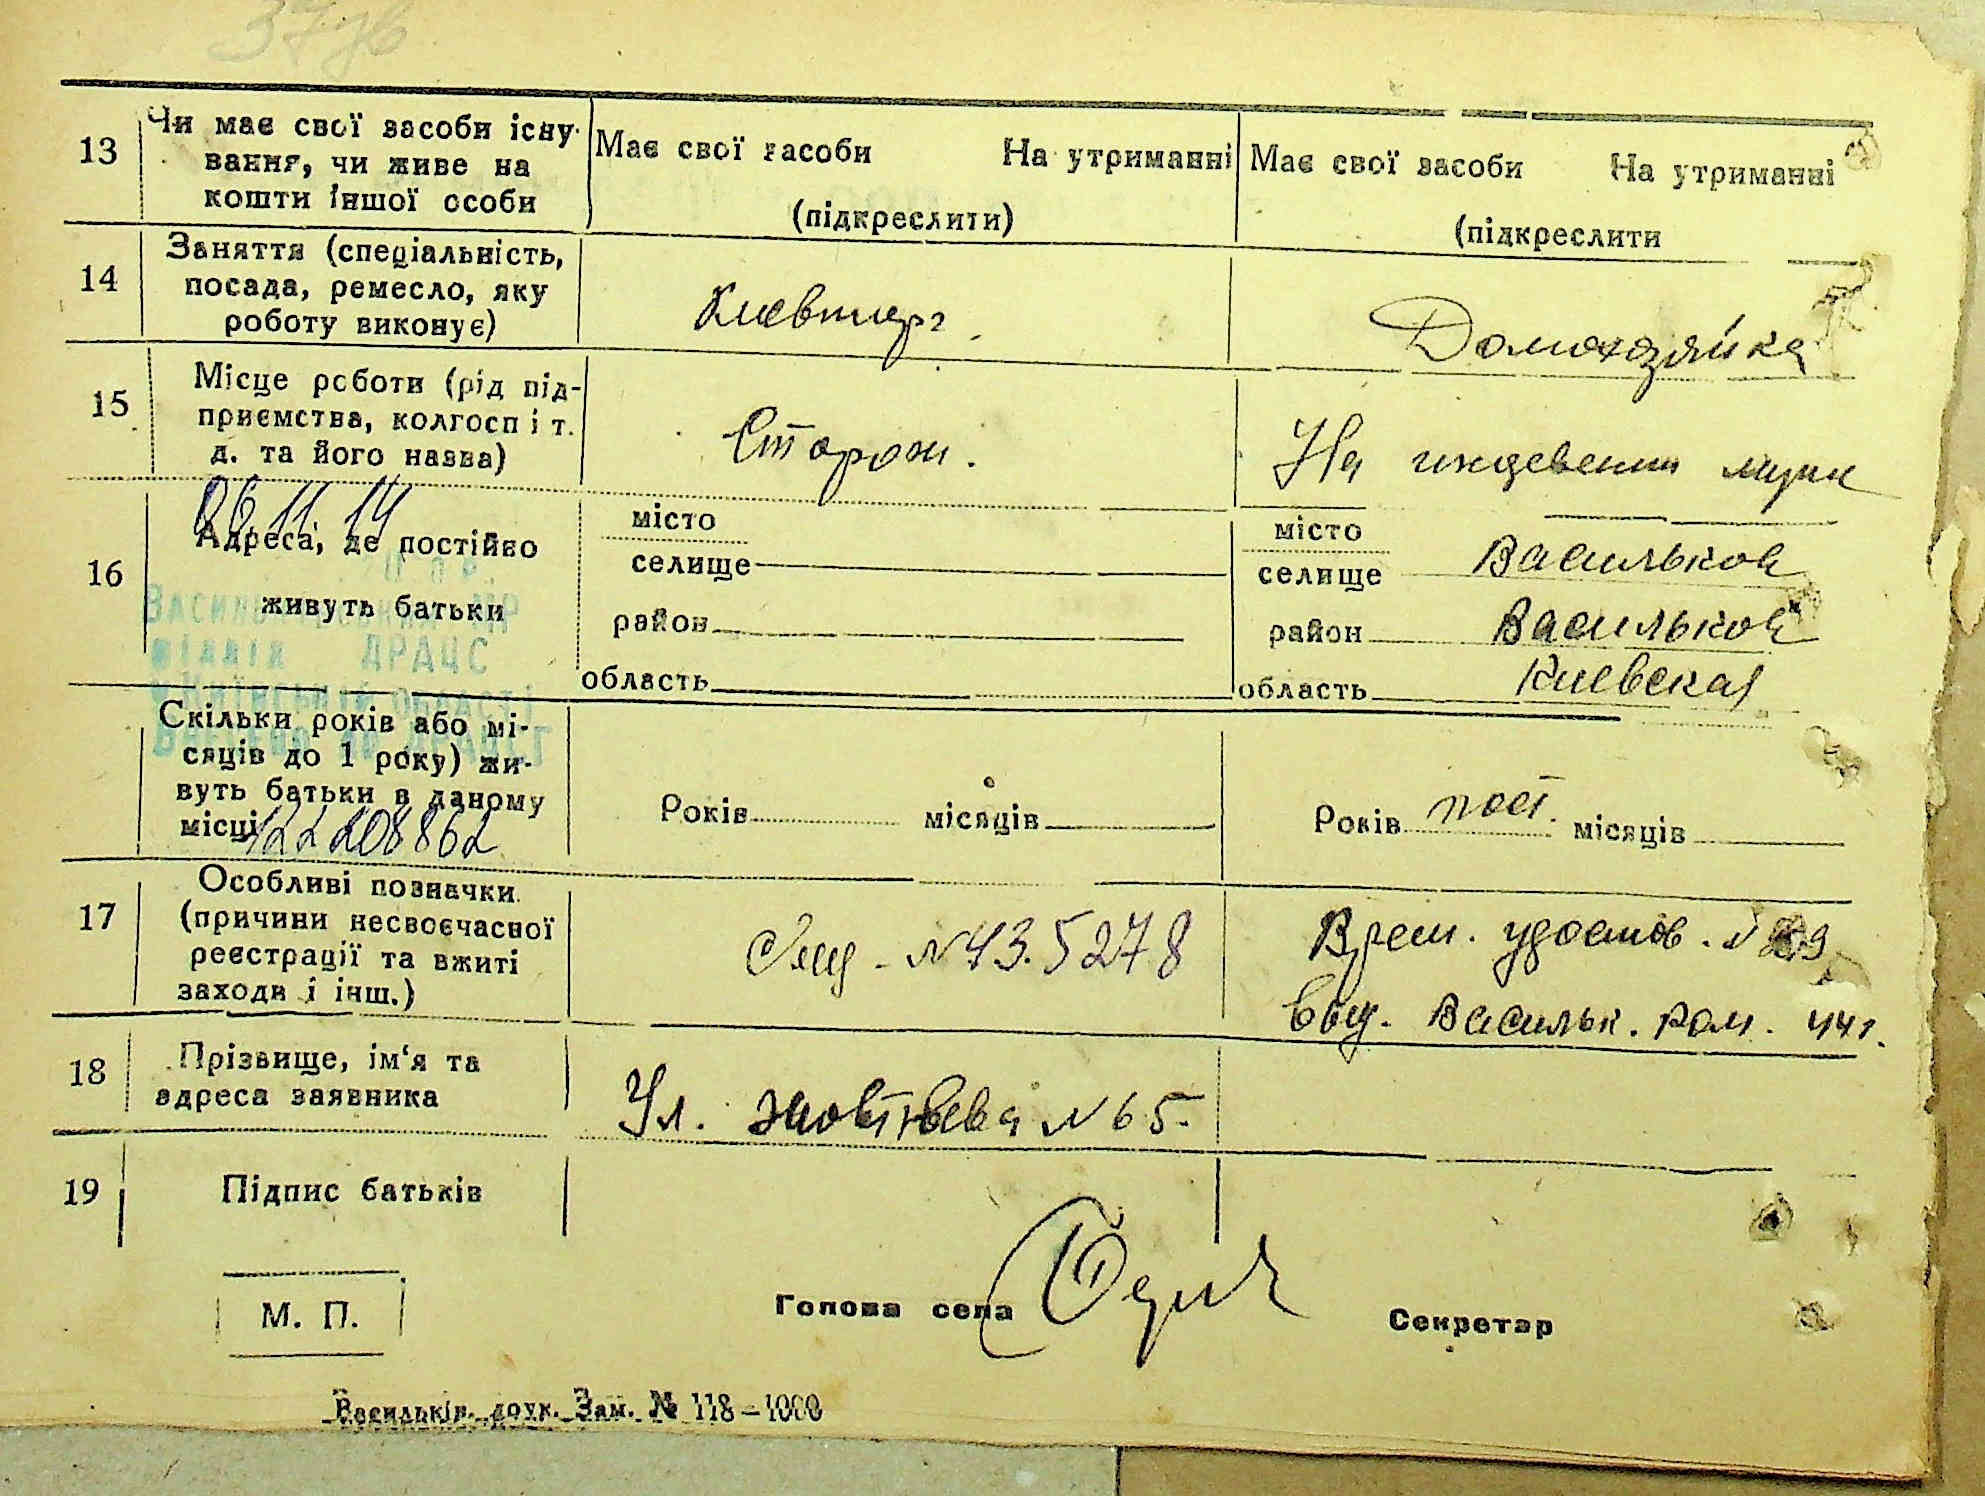 37зв
13
Чи має свої засоби існу-
вання, чи живе на
кошти іншої особи
Має свої засоби На утриманні
(підкреслити)
Має свої засоби На утриманні
(підкреслити
14
Заняття (спеціальність,
посада, ремесло, яку
роботу виконує)
Киевторг
Домохозяйка
15
Місце роботи (рід під-
приємства, колгосп і т.
д. та його назва)
Сторож.
На иждевении мужа
06 11 14
16
Адреса, де постійно
живуть батьки
місто
селище
район
область
місто
селище Васильков
район Васильков
область Киевская
ДРАЦС
Скільки років або мі-
сяців до 1 року) жи-
вуть батьки в даному
місці
122208862
Років місяців
Років пост. місяців
17
Особливі позначки
(причини несвоєчасної
реєстрації та вжиті
заходи і інш.)
№ 43.5278
Врем. удостов. №
выд. Васильк. 44г.
18
Прізвище, ім'я та
адреса заявника
Ул. Жовтнева № 65-
19
Підпис батьків
М. П.
Голова села
Секретар
Васильків. друк. Зам. № 118—1000